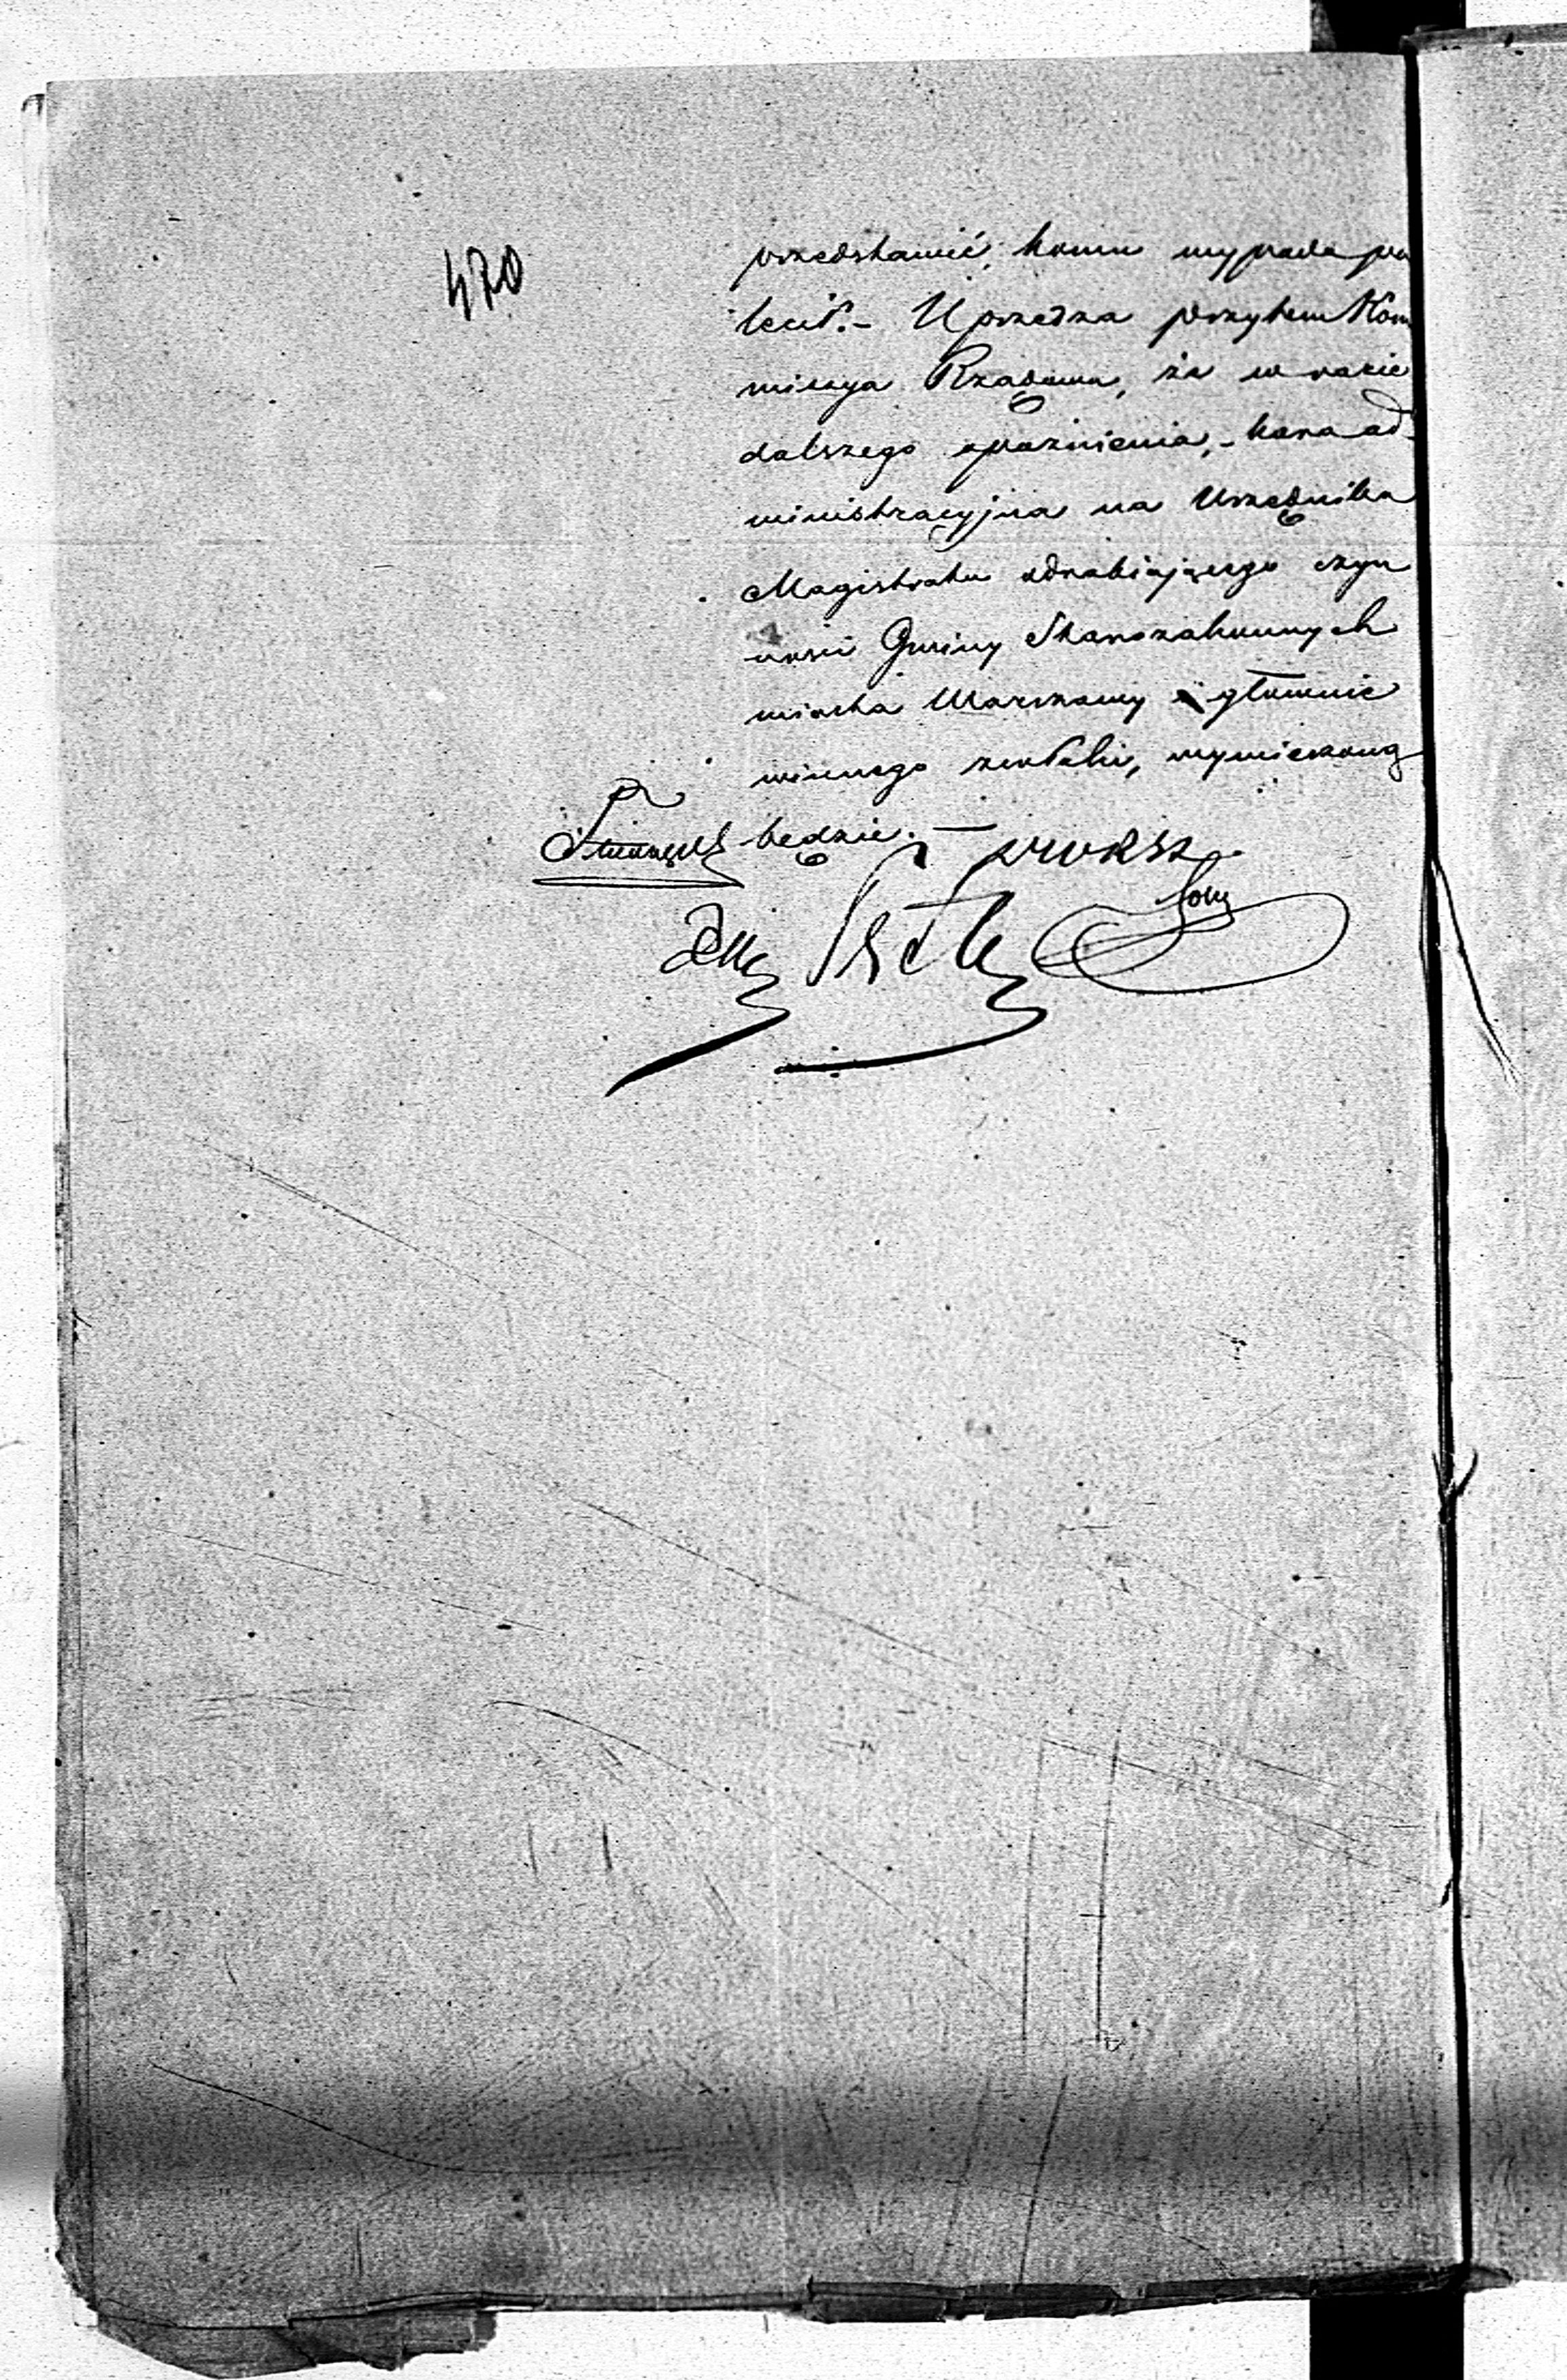 470
przedstawić, komu wypada po
lecił. – Uprzedza przytem Kom
missya Rządowa, że w razie
dalszego opóźnienia, – kara ad-
ministracyjna na Urzędnika
Magistratu odrabiającego czyn
ności Gminy Starozakonnych
miasta Warszawy i głównie
winnego zwłoki, wymierzoną
będzie. –